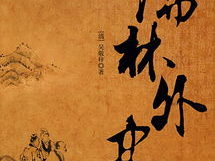 儒林外史
[清] 吴敬梓◎著